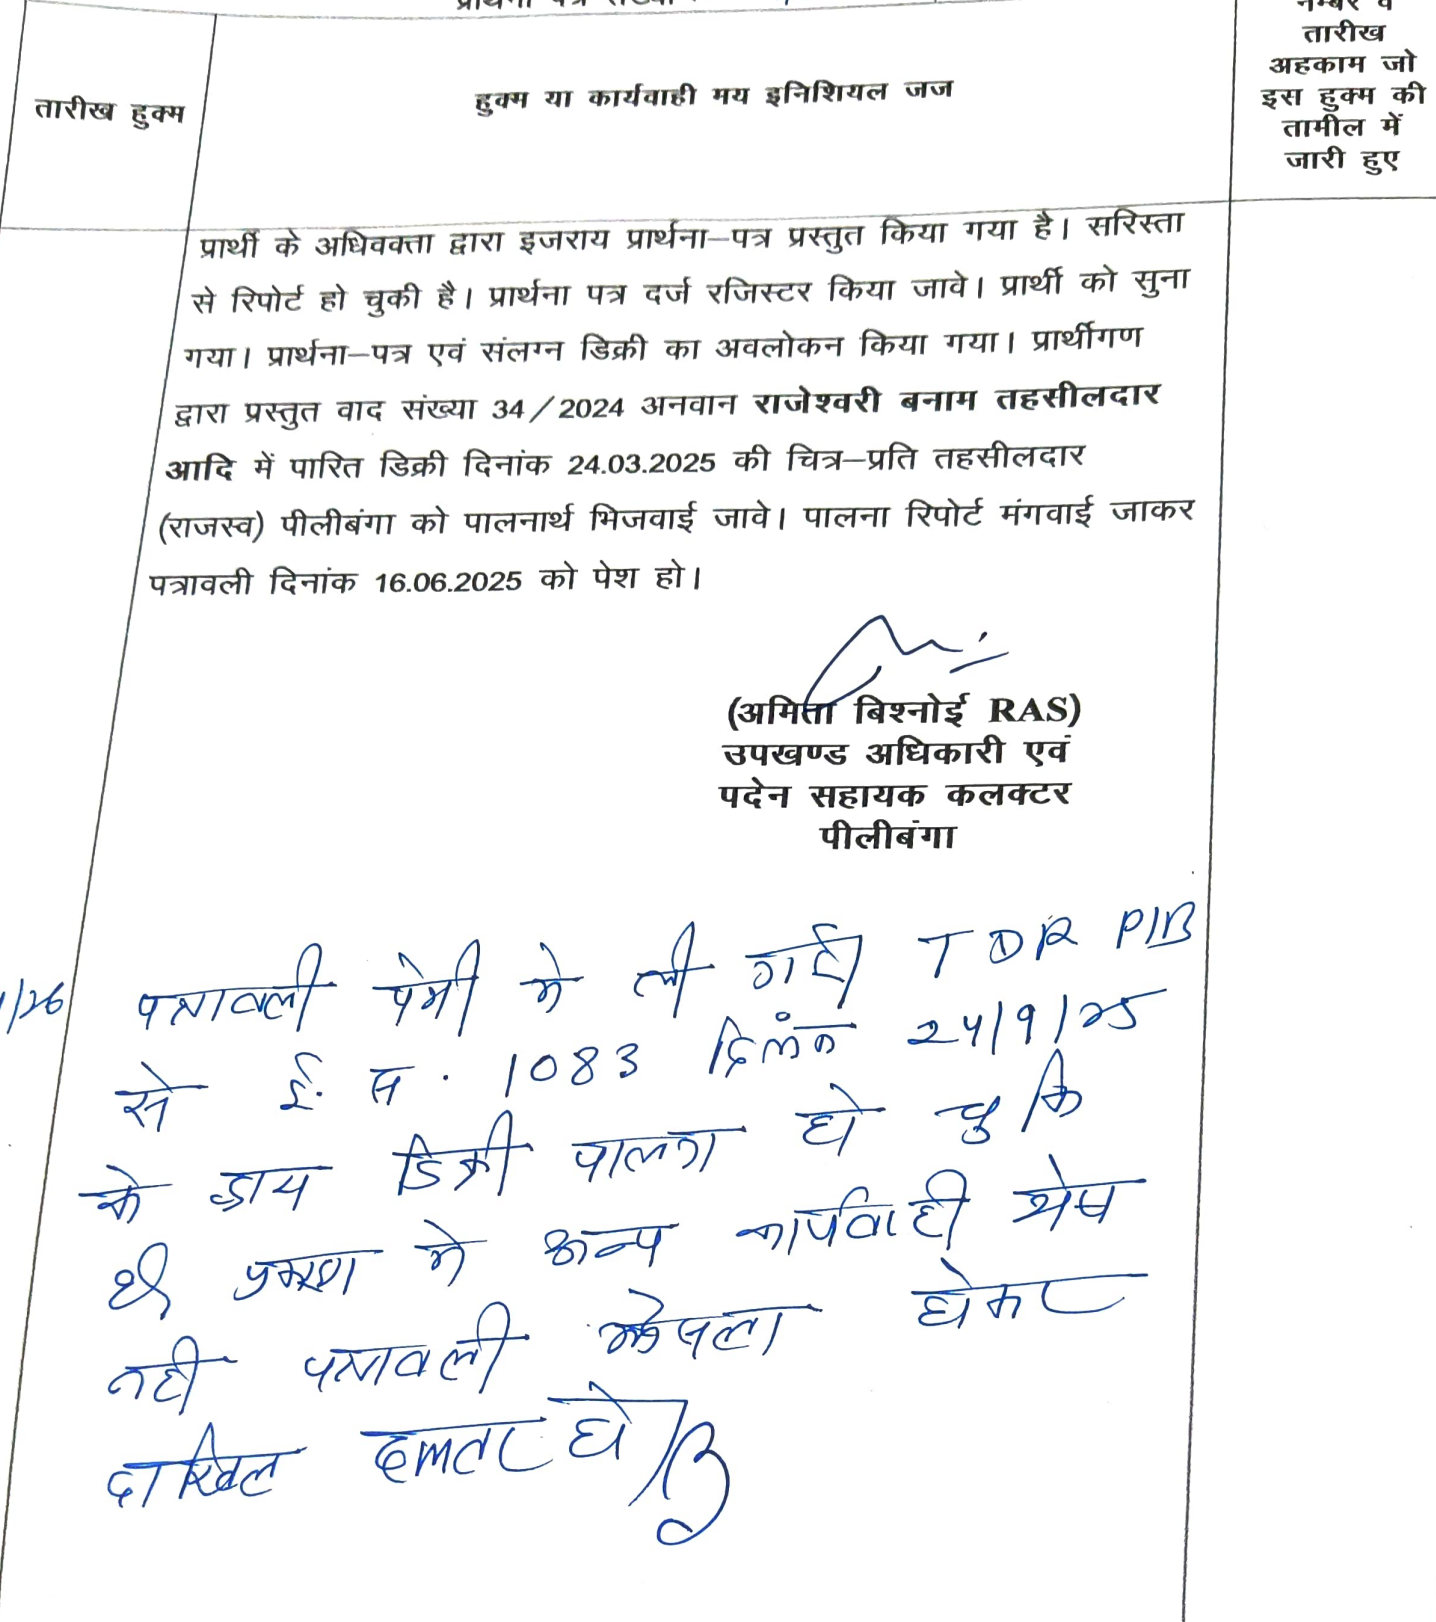 तारीख हुक्म
हुक्म या कार्यवाही मय इनिशियल जज
नम्बर व
तारीख
अहकाम जो
इस हुक्म की
तामील में
जारी हुए
प्रार्थी के अधिवक्ता द्वारा इजराय प्रार्थना–पत्र प्रस्तुत किया गया है। सरिस्ता
से रिपोर्ट हो चुकी है। प्रार्थना पत्र दर्ज रजिस्टर किया जावे। प्रार्थी को सुना
गया। प्रार्थना–पत्र एवं संलग्न डिक्री का अवलोकन किया गया। प्रार्थीगण
द्वारा प्रस्तुत वाद संख्या 34/2024 अनवान राजेश्वरी बनाम तहसीलदार
आदि में पारित डिक्री दिनांक 24.03.2025 की चित्र–प्रति तहसीलदार
(राजस्व) पीलीबंगा को पालनार्थ भिजवाई जावे। पालना रिपोर्ट मंगवाई जाकर
पत्रावली दिनांक 16.06.2025 को पेश हो।
(अमिता बिश्नोई RAS)
उपखण्ड अधिकारी एवं
पदेन सहायक कलक्टर
पीलीबंगा
/26 पत्रावली पेशी मे ली गई। TDR PIB
से ई. स. 1083 दिनांक 24/9/25
के द्वारा डिक्री पालना हो चुकि
है प्रकरण मे अन्य कार्यवाही शेष
नही पत्रावली फैसला होकर
दाखिल दफ्तर हो